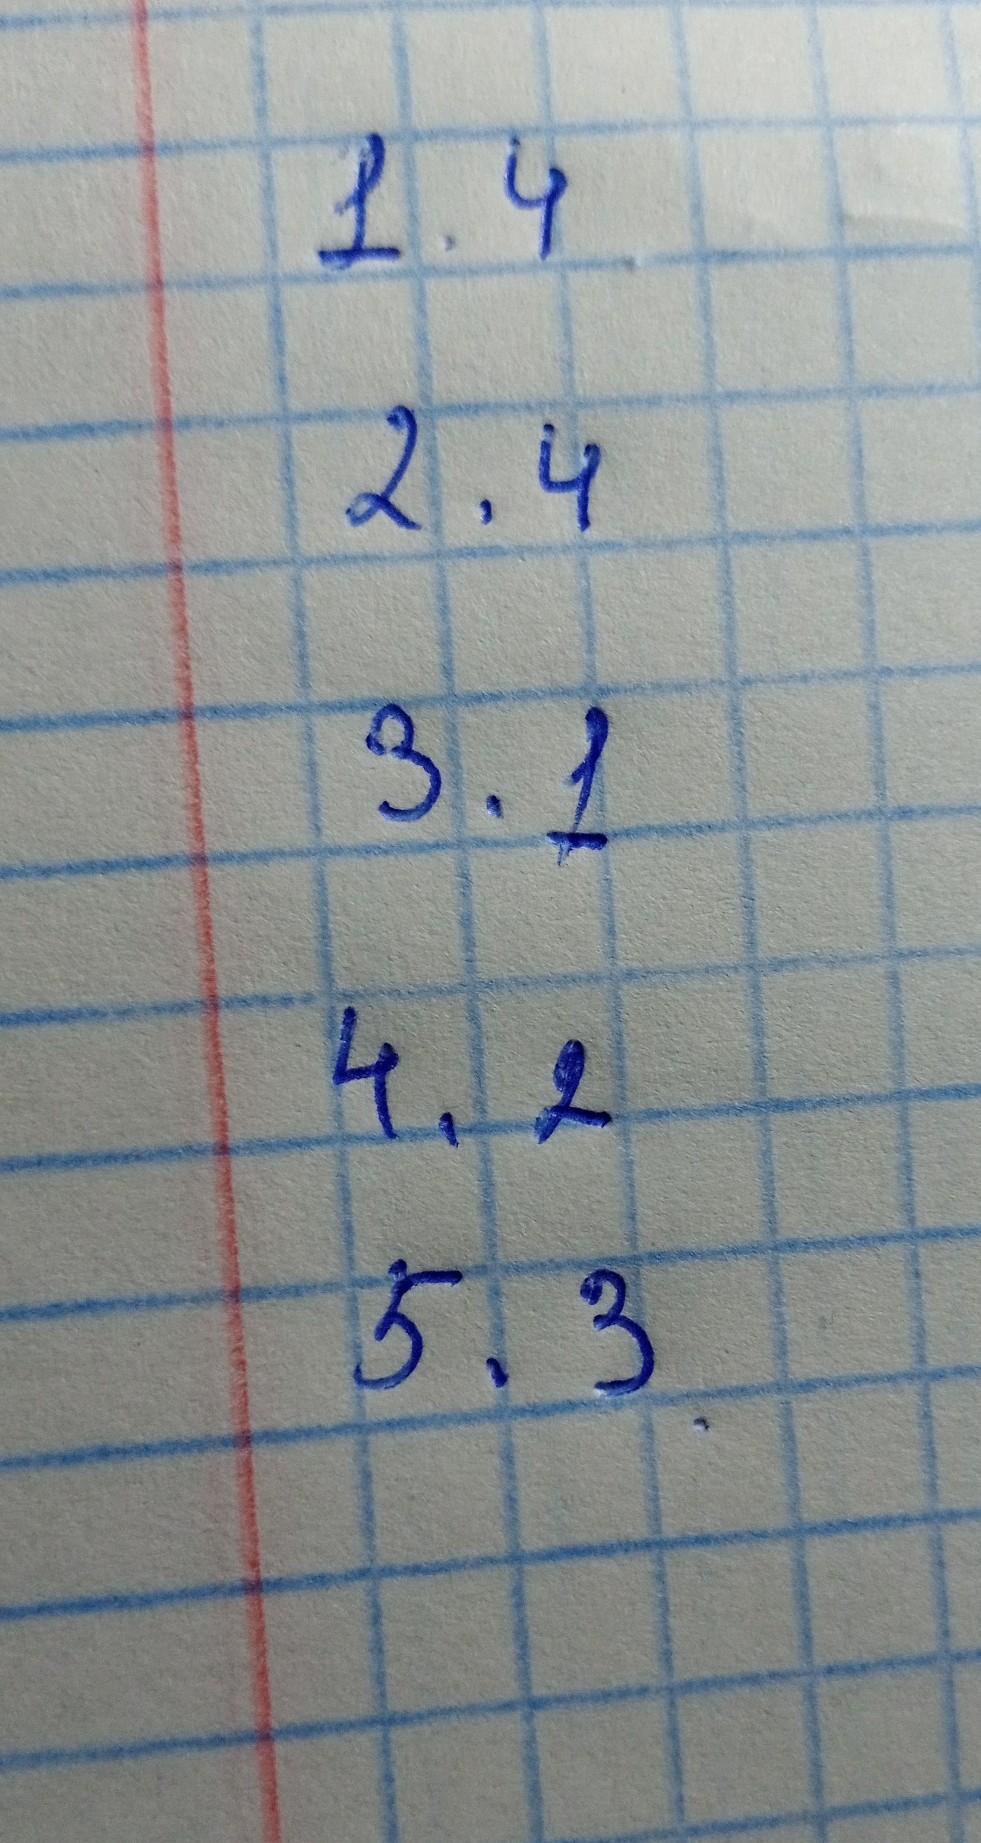 1. 4
2. 4
3. 1
4. 2
5. 3